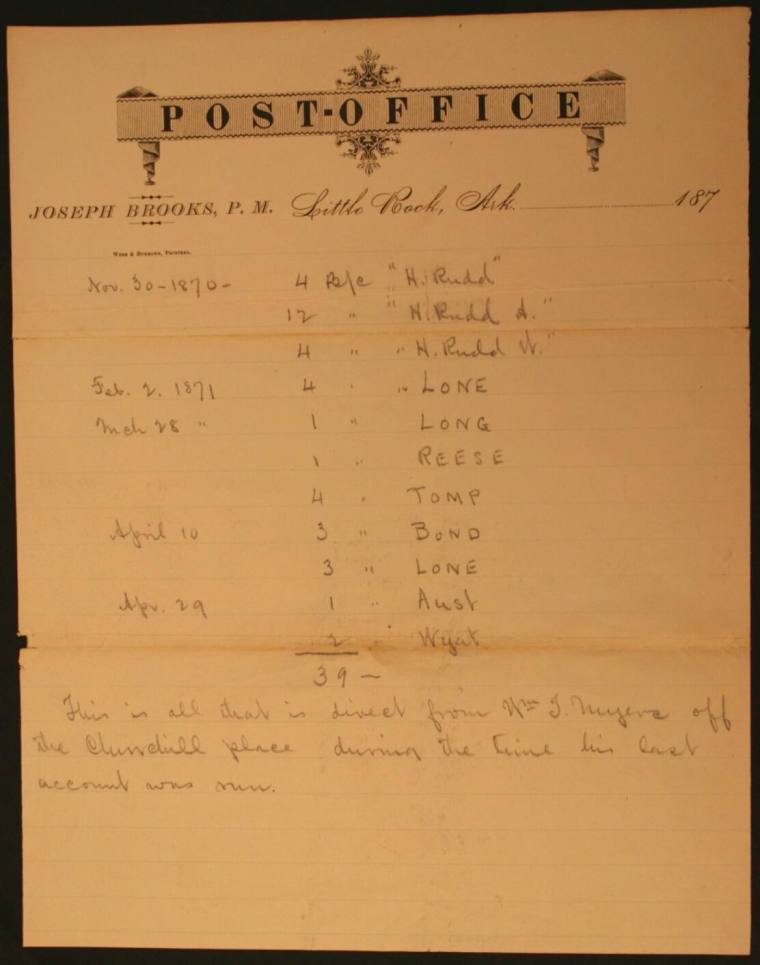 POST-OFFICE
JOSEPH BROOKS, P. M. Little Rock, Ark. 187
Nov. 30-1870- 4 B/c "H. Rudd"
12 " "H. Rudd A."
4 " "H. Rudd W."
Feb. 2. 1871 4 " " LONE
Mch 28 " 1 " LONG
1 " REESE
4 " TOMP
April 10 3 " BOND
3 " LONE
Apr. 29 1 " Aust
2 " Wyat
39 –
This is all that is direct from Wm J. Myers off
the Churchill place during the time his last
account was run.